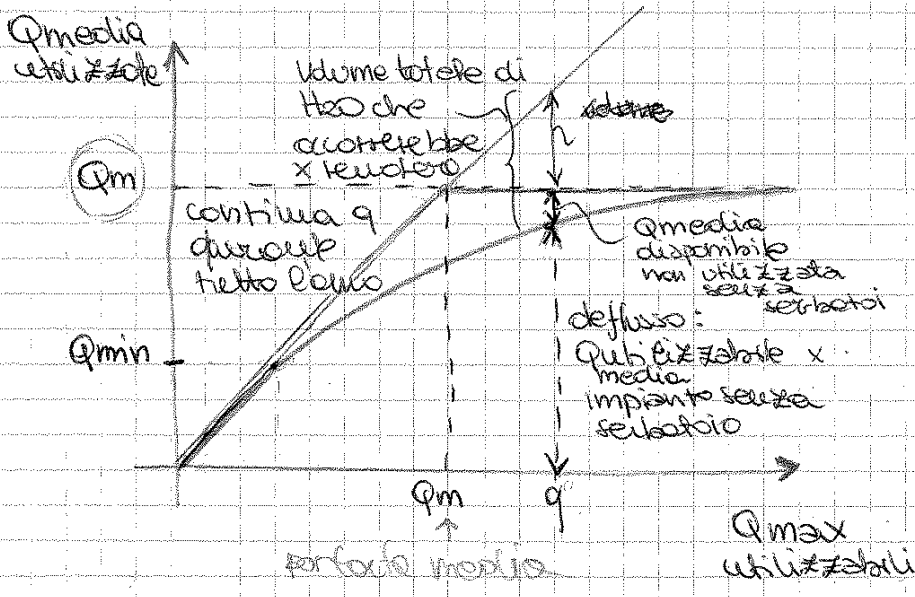 Qmedia
utilizzate
Volume totale di
H2O che
occorrerebbe
x rendere
Qm
continua q
durante
tutto l'anno
Qmedia
disponibile
non utilizzata
senza
serbatoi
deflusso:
Qmin
Qutilizzabile x
media
impianto senza
serbatoio
Qm
q
Qmax
utilizzabili
portata media